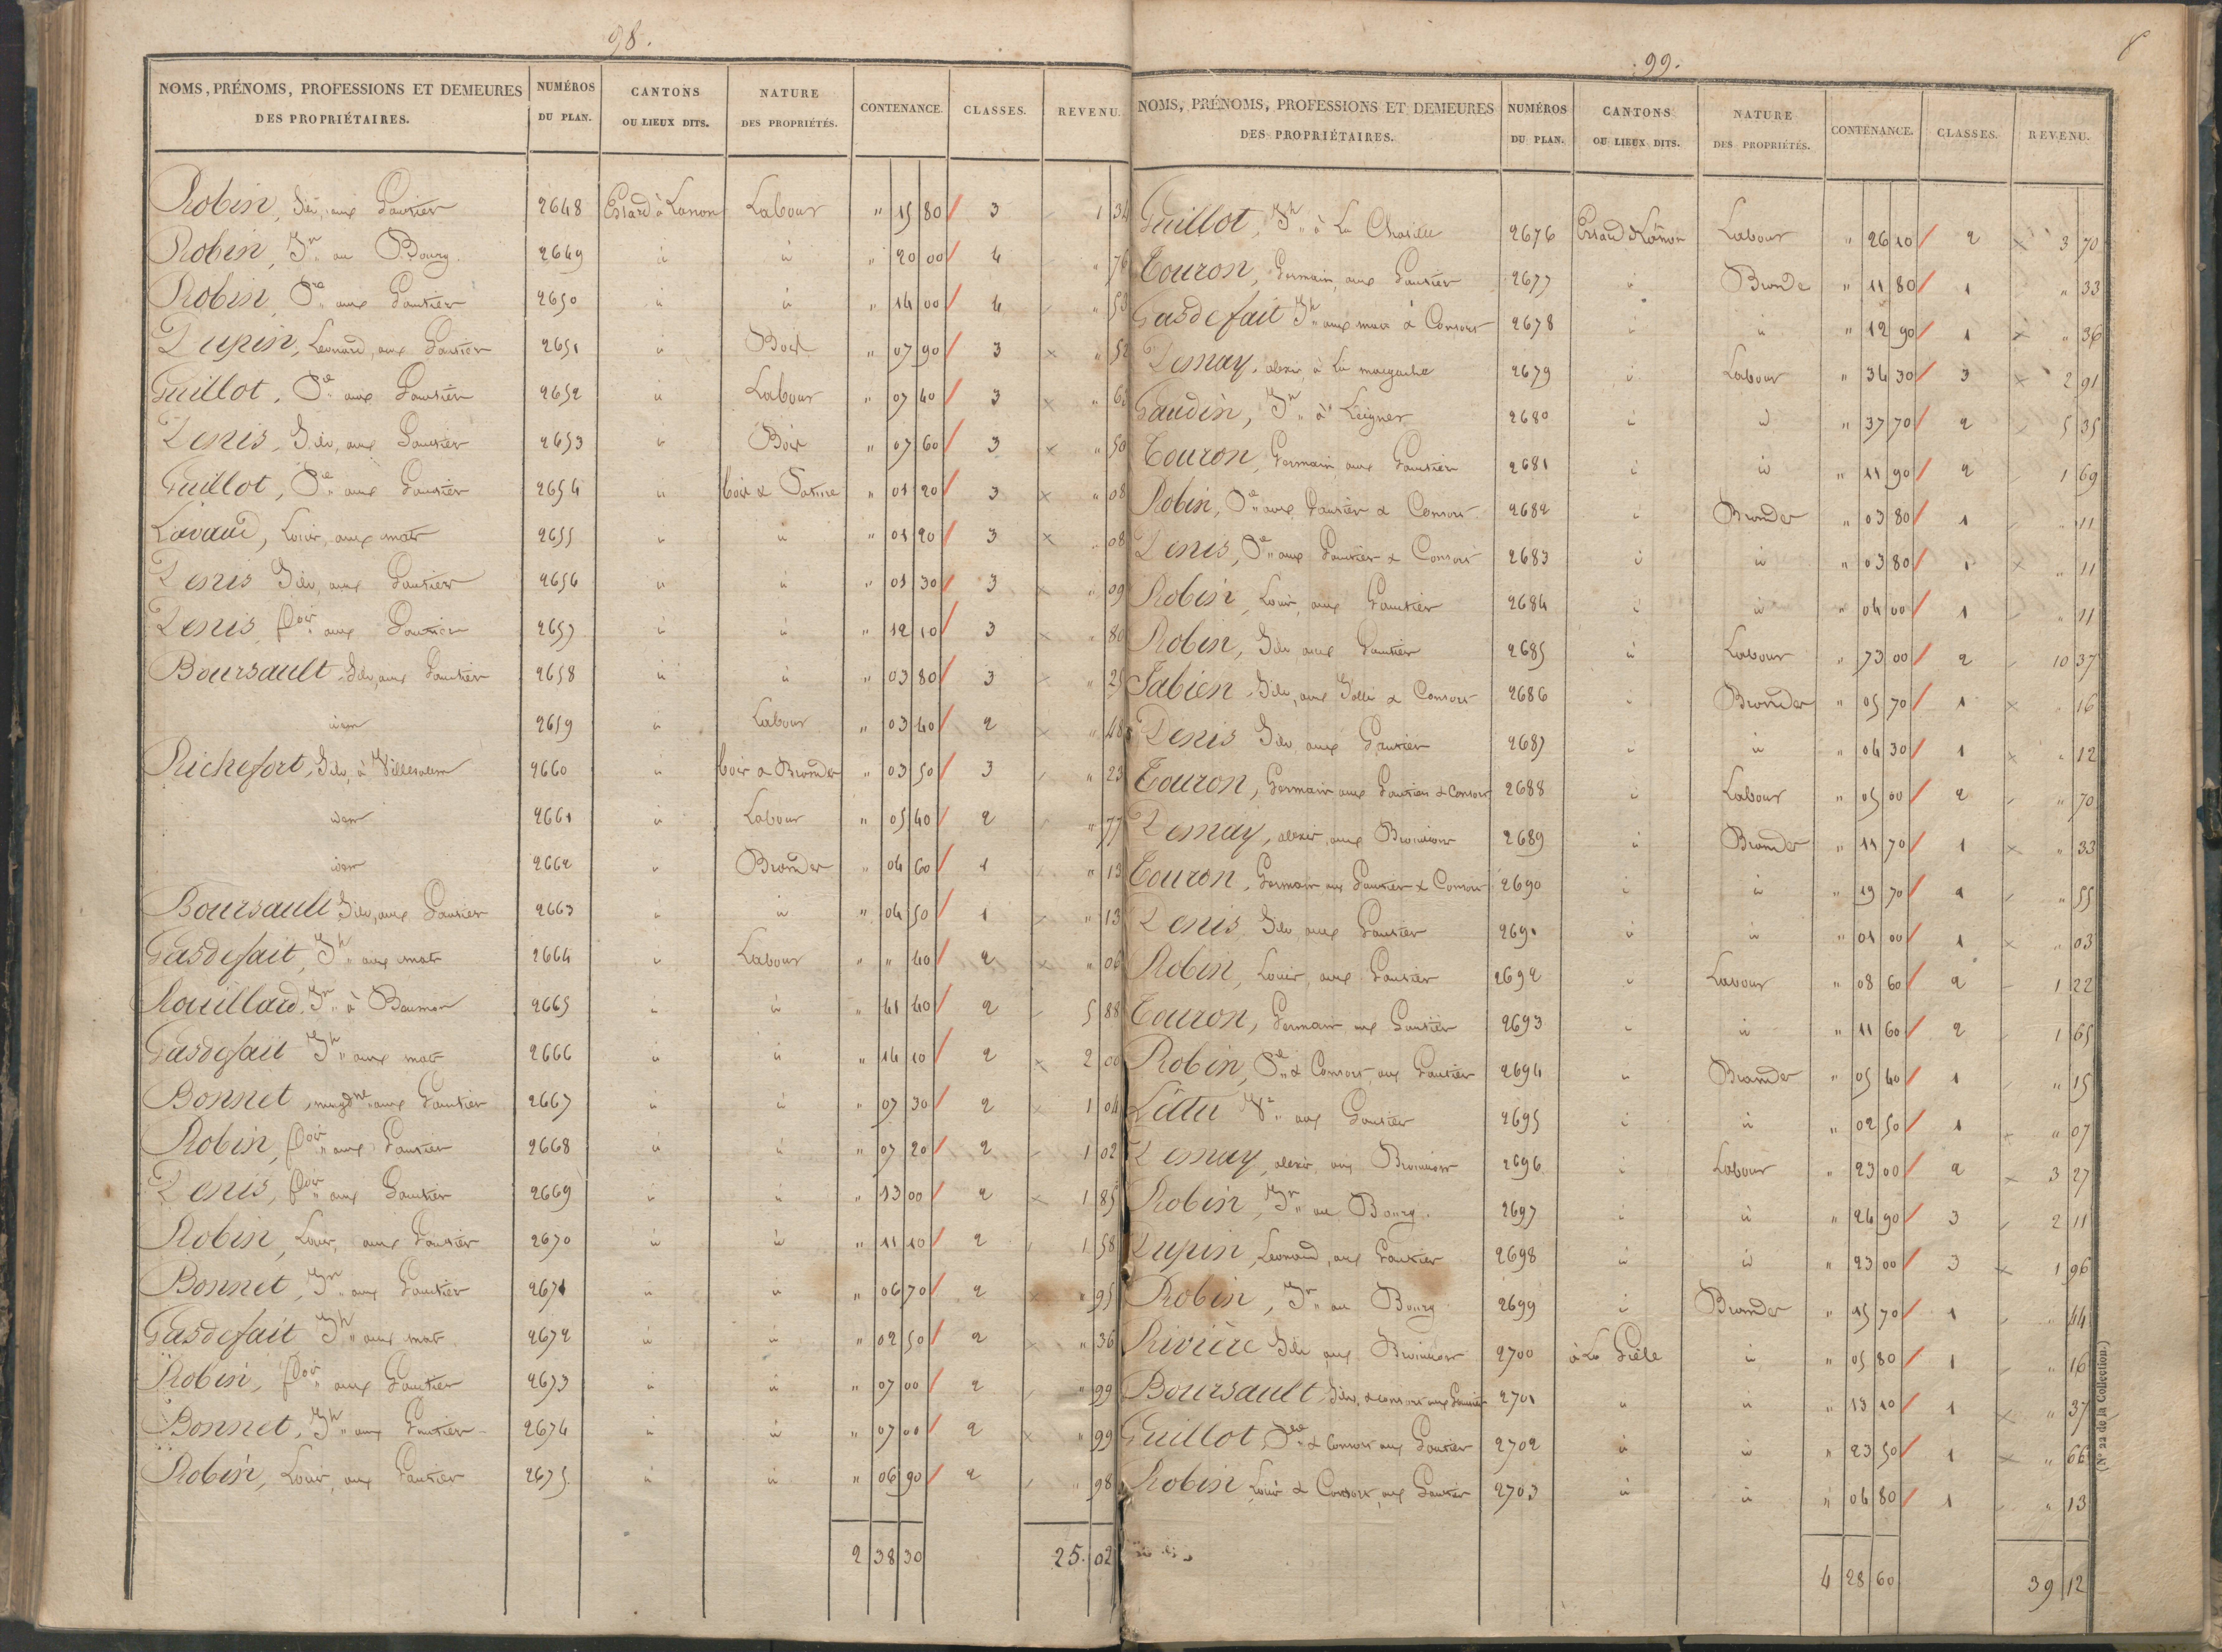 98.
NOMS, PRÉNOMS, PROFESSIONS ET DEMEURES DES PROPRIÉTAIRES. NUMÉROS DU PLAN. CANTONS OU LIEUX DITS. NATURE DES PROPRIÉTÉS. CONTENANCE. CLASSES. REVENU.
Robin, Silv, aux Gautier 2648 Essard à Lanon Labour " 15 80 3 1 34
Robin, Jn au Bourg. 2649 " 20 00 4 " 76
Robin, Pre aux Gautier 2650 " 14 00 4 " 53
Dupin, Leonard, aux Gautier 2651 Bois " 07 90 3 " 52
Guillot, Pre aux Gautier 2652 Labour " 07 40 3 "
Denis, Silv, aux Gautier 2653 Bois " 07 60 3 " 50
Guillot, Pre aux Gautier 2654 bois & " 01 20 3 " 08
Lavaud, Louis, aux mats 2655 " 01 20 3 " 08
Denis Silv, aux Gautier 2656 " 01 30 3 " 09
Denis, aux Gautier 2657 " 12 10 3 " 80
Boursault, Silv, aux Gautier 2658 " 03 80 3 " 25
idem 2659 Labour " 03 40 2 " 48
Richefort, Silv, à Villesalem 2660 bois & Brandes " 03 50 3 " 23
idem 2661 Labour " 05 40 2 " 77
idem 2662 Brandes " 04 60 1 " 13
Boursault Silv, aux Gautier 2663 " 04 50 1 " 13
Gasdefait, Jh aux mats 2664 Labour " " 40 2 " 06
Rouillard, Jn à Baumon 2665 " 41 40 2 5 88
Gasdefait Jh aux mats 2666 " 14 10 2 2 00
Bonnet, aux Gautier 2667 " 07 30 2 1 04
Robin, aux Gautier 2668 " 07 20 2 1 02
Denis, aux Gautier 2669 " 13 00 2 1 85
Robin, Louis, aux Gautier 2670 " 11 10 2 1 58
Bonnet, Jn aux Gautier 2671 " 06 70 2 " 95
Gasdefait Jh aux mats 2672 " 02 50 2 " 36
Robin, aux Gautier 2673 " 07 00 2 " 99
Bonnet, Jh aux Gautier 2674 " 07 00 2 " 99
Robin, Louis, aux Gautier 2675 " 06 90 2 " 98
2 38 30 25. 02
99.
NOMS, PRÉNOMS, PROFESSIONS ET DEMEURES DES PROPRIÉTAIRES. NUMÉROS DU PLAN. CANTONS OU LIEUX DITS. NATURE DES PROPRIÉTÉS. CONTENANCE. CLASSES. REVENU.
Guillot, Jh à La 2676 Essard à Lanon Labour " 26 10 2 3 70
Touron, Germain, aux Gautier 2677 Brande " 11 80 1 " 33
Gasdefait Jh aux mats & Consors 2678 " 12 90 1 " 36
Demay, alexis, à La 2679 Labour " 34 30 3 2 91
Gaudin, Jn à Leigner 2680 " 37 70 2 5 35
Touron, Germain, aux Gautier 2681 " 11 90 2 1 69
Robin, Pre aux Gautier & Consors 2682 Brandes " 03 80 1 " 11
Denis, Pre aux Gautier & Consors 2683 " 03 80 1 " 11
Robin, Louis, aux Gautier 2684 " 04 00 1 " 11
Robin, Silv, aux Gautier 2685 Labour " 73 00 2 10 37
Fabien Silv, aux & Consors 2686 Brandes " 05 70 1 " 16
Denis Silv, aux Gautier 2687 " 04 30 1 " 12
Touron, Germain aux Gautier & Consors 2688 Labour " 05 00 2 " 70
Demay, alexis, aux 2689 Brandes " 11 70 1 " 33
Touron, Germain aux Gautier & Consors 2690 " 19 70 1 " 55
Denis Silv, aux Gautier 2691 " 01 00 1 " 03
Robin, Louis, aux Gautier 2692 Labour " 08 60 2 1 22
Touron, Germain aux Gautier 2693 " 11 60 2 1 65
Robin, Pre & Consors, aux Gautier 2694 Brandes " 05 40 1 " 15
aux Gautier 2695 " 02 50 1 " 07
Demay, alexis, aux 2696 Labour " 23 00 2 3 27
Robin, Jn au Bourg. 2697 " 24 90 3 2 11
Dupin, Leonard, aux Gautier 2698 " 23 00 3 1 96
Robin, Jn au Bourg 2699 Brandes " 15 70 1 " 44
Rivière Silv aux 2700 " 05 80 1 " 16
Boursault, Silv, & consors aux Gautier 2701 " 13 10 1 " 37
Guillot, Pre & Consors aux Gautier 2702 " 23 50 1 " 66
Robin Louis & Consors, aux Gautier 2703 " 04 80 1 " 13
4 28 60 39 12
(N° 22 de la Collection.)